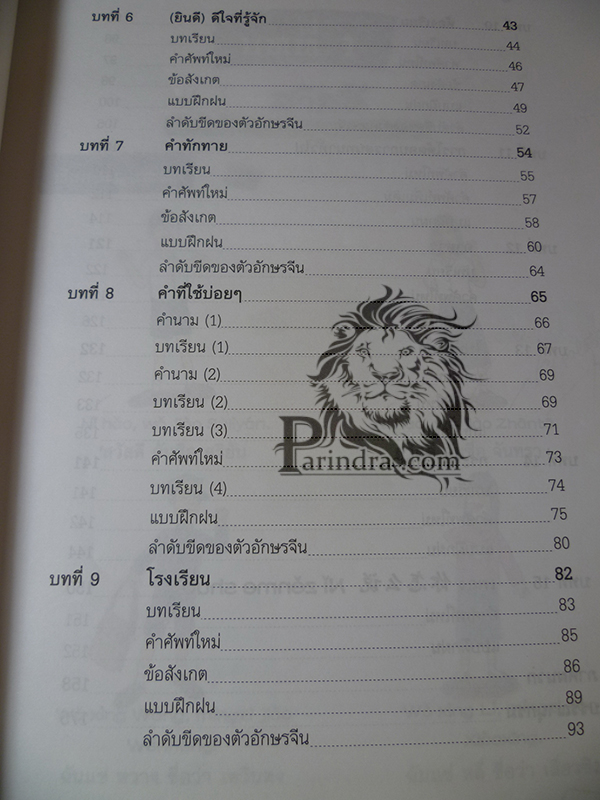 บทที่ 6 (ยินดี) ดีใจที่รู้จัก 43
บทเรียน 44
คำศัพท์ใหม่ 46
ข้อสังเกต 47
แบบฝึกฝน 49
ลำดับขีดของตัวอักษรจีน 52
บทที่ 7 คำทักทาย 54
บทเรียน 55
คำศัพท์ใหม่ 57
ข้อสังเกต 58
แบบฝึกฝน 60
ลำดับขีดของตัวอักษรจีน 64
บทที่ 8 คำที่ใช้บ่อยๆ 65
คำนาม (1) 66
บทเรียน (1) 67
คำนาม (2) 69
บทเรียน (2) 69
บทเรียน (3) 71
คำศัพท์ใหม่ 73
บทเรียน (4) 74
แบบฝึกฝน 75
ลำดับขีดของตัวอักษรจีน 80
บทที่ 9 โรงเรียน 82
บทเรียน 83
คำศัพท์ใหม่ 85
ข้อสังเกต 86
แบบฝึกฝน 89
ลำดับขีดของตัวอักษรจีน 93
Parindra.com